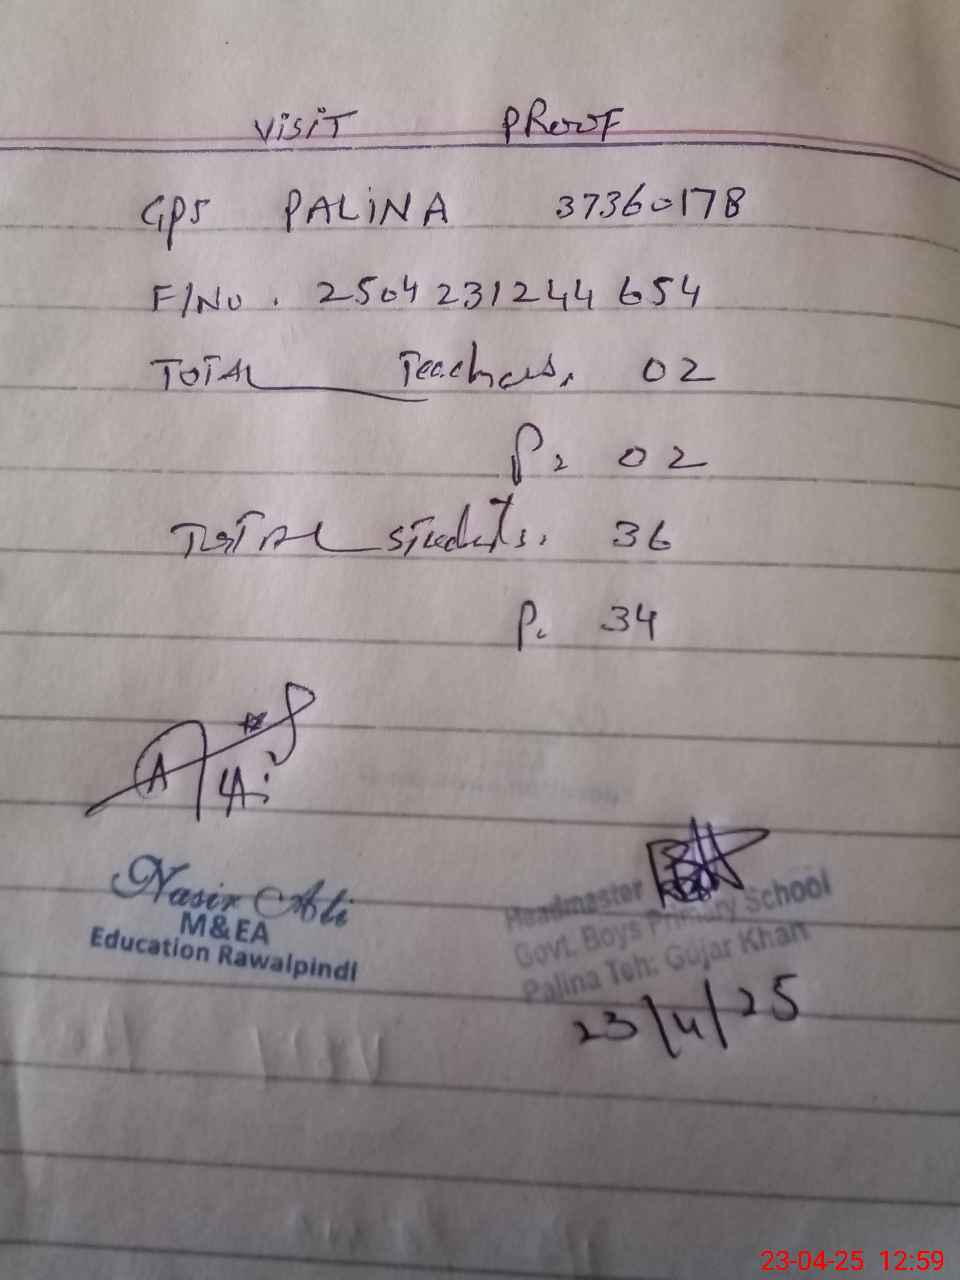 VISIT PROOF
GPS PALINA 37360178
F/No. 2504231244654
TOTAL Teachers. 02
P. 02
TOTAL students. 36
P. 34
Nasir Ali
M&EA
Education Rawalpindi
Headmaster
Govt. Boys Primary School
Palina Teh: Gujar Khan
23/4/25
23-04-25 12:59